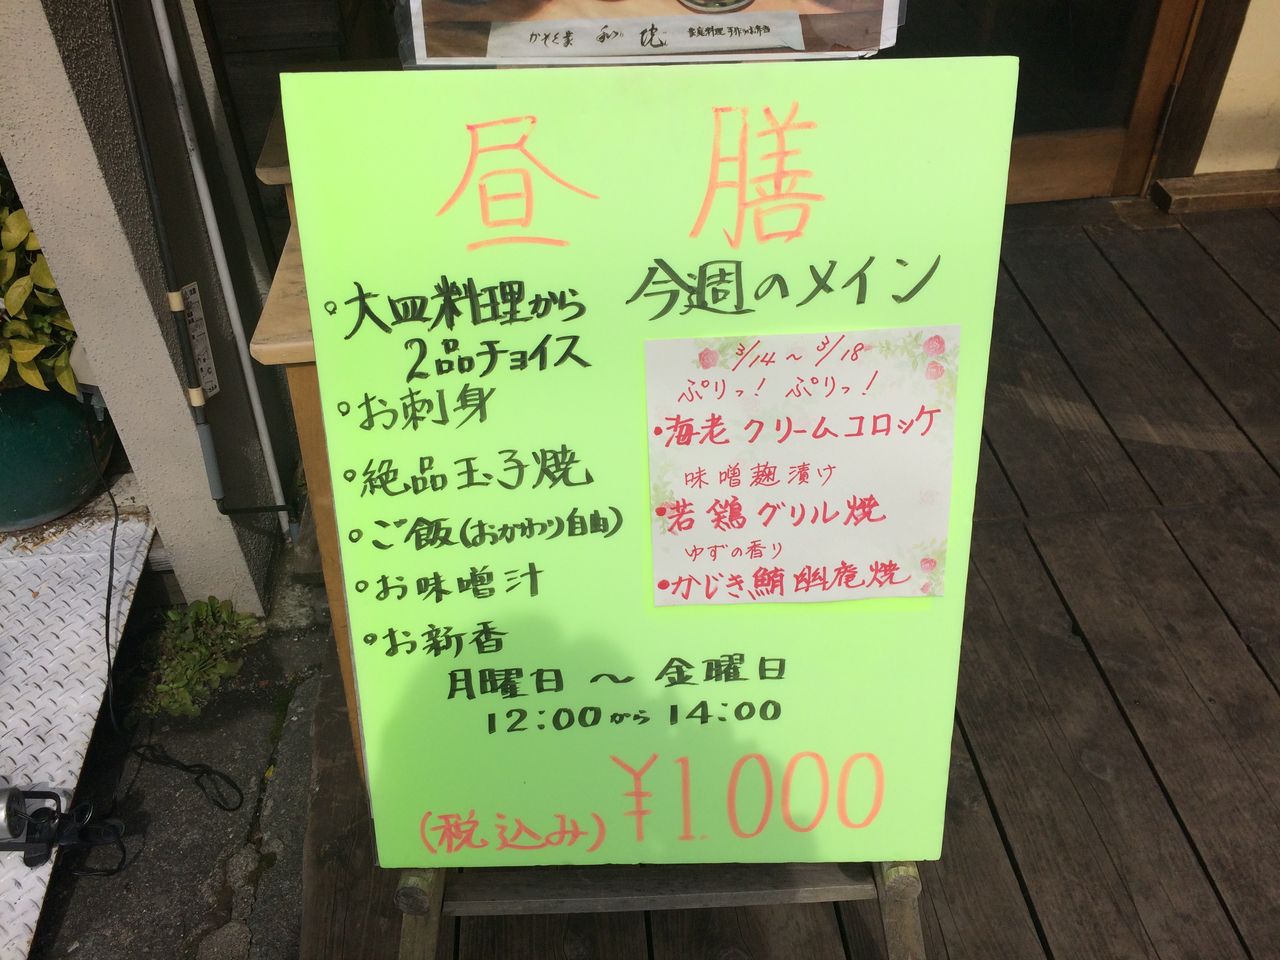 家庭料理 手作りのお弁当
昼膳
・大皿料理から
2品チョイス
・お刺身
・絶品玉子焼
・ご飯(おかわり自由)
・お味噌汁
・お新香
今週のメイン
3/14〜3/18
ぷりっ! ぷりっ!
・海老クリームコロッケ
味噌麹漬け
・若鶏グリル焼
ゆずの香り
・かじき鮪幽庵焼
月曜日〜金曜日
12:00から14:00
(税込み)¥1.000